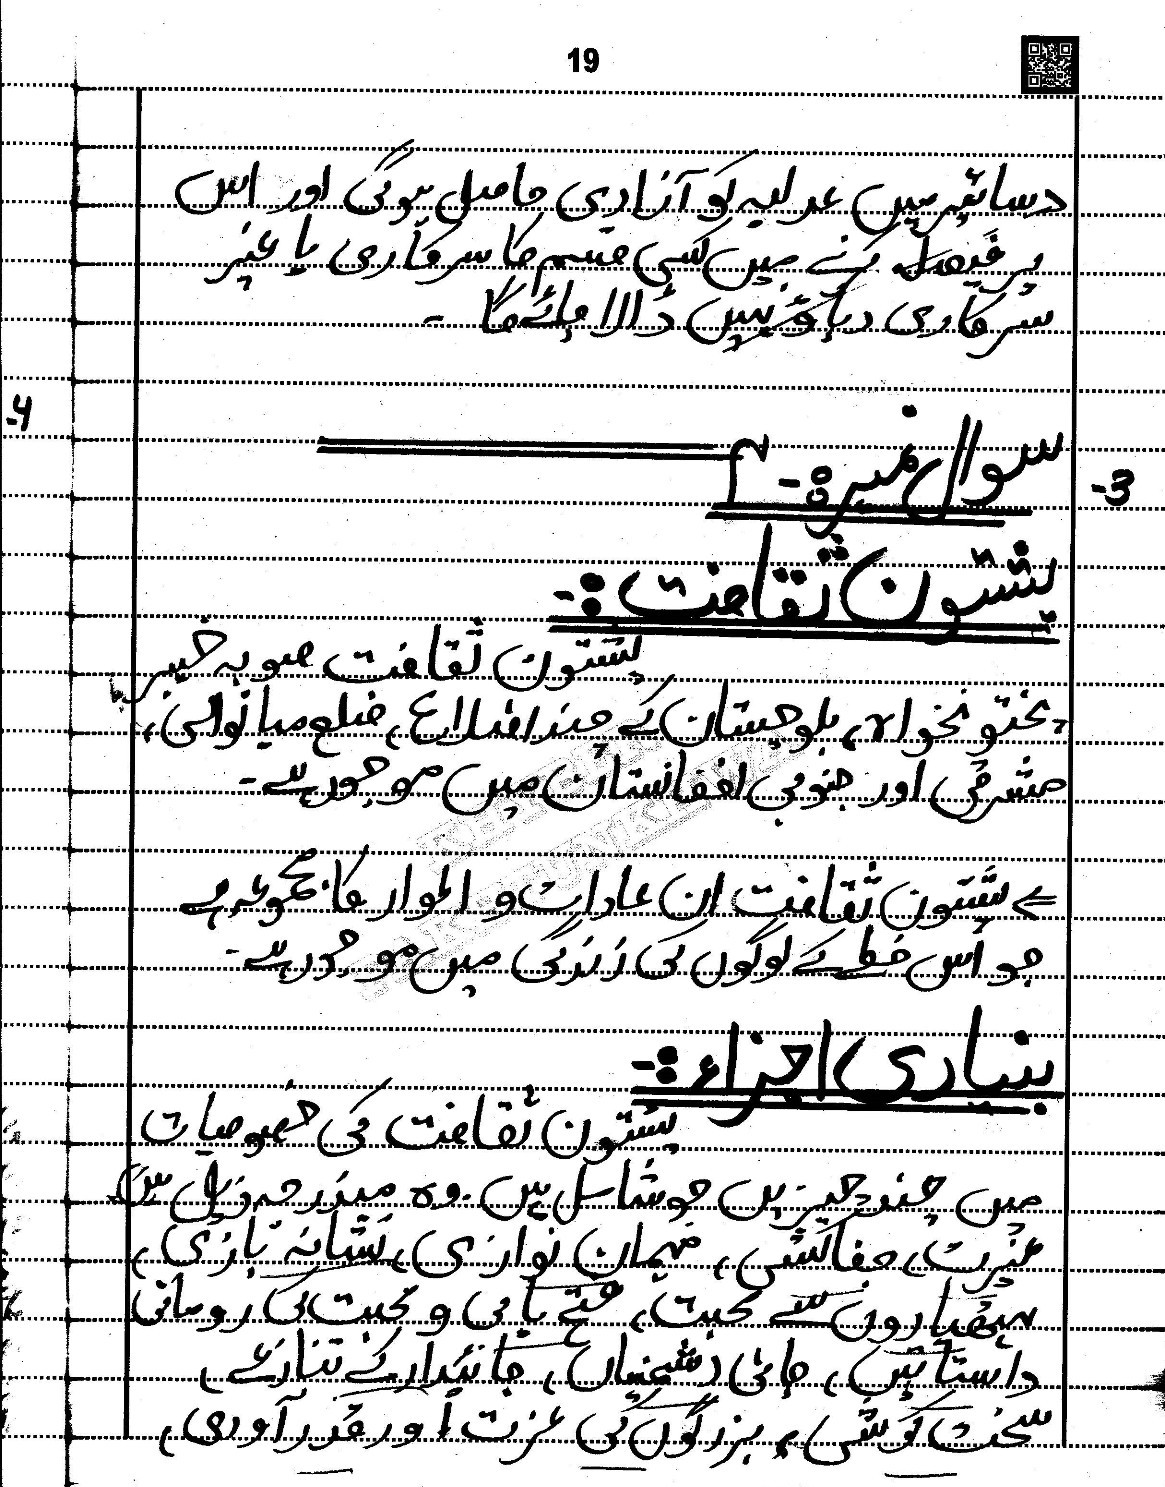 19
دساتیر میں عدلیہ کو آزادی حاصل ہوگی اور اس
پر فیصلہ کرنے میں کسی قسم کا سرکاری یا غیر
سرکاری دباؤ نہیں ڈالا جائے گا ۔
4-
سوال نمبر ۴ :-
3-
پشتون ثقافت :-
پشتون ثقافت صوبہ خیبر
پختونخواہ، بلوچستان کے چند اضلاع، ضلع میانوالی،
مشرقی اور جنوبی افغانستان میں موجود ہے ۔
⇐ پشتون ثقافت ان عادات و اطوار کا مجموعہ ہے
جو اس خطے کے لوگوں کی زندگی میں موجود ہے ۔
بنیادی اجزاء :-
پشتون ثقافت کی خصوصیات
میں چند چیزیں جو شامل ہیں ۔ وہ مندرجہ ذیل ہیں
غیرت، جفاکشی، مہمان نوازی، نشانہ بازی،
ہتھیاروں سے محبت، و محبت کی رومانی
داستانیں، جانی دشمنیاں، جائیداد کے تنازعے،
سخت کوشی، بزرگوں کی عزت اور قدر آوری،